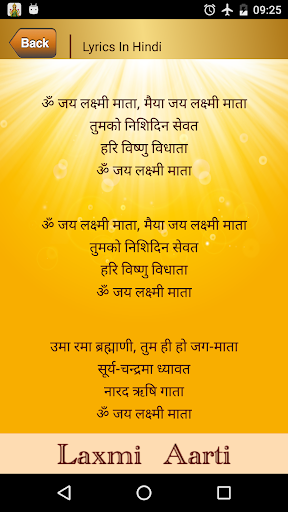 09:25
Back
Lyrics In Hindi
ॐ जय लक्ष्मी माता, मैया जय लक्ष्मी माता
तुमको निशिदिन सेवत
हरि विष्णु विधाता
ॐ जय लक्ष्मी माता
ॐ जय लक्ष्मी माता, मैया जय लक्ष्मी माता
तुमको निशिदिन सेवत
हरि विष्णु विधाता
ॐ जय लक्ष्मी माता
उमा रमा ब्रह्माणी, तुम ही हो जग-माता
सूर्य-चन्द्रमा ध्यावत
नारद ऋषि गाता
ॐ जय लक्ष्मी माता
Laxmi Aarti